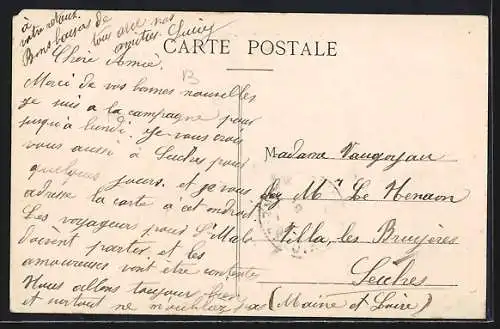 CARTE POSTALE
Chère Amie.
Merci de vos bonnes nouvelles
je suis a la campagne pour
jusqu'à lundi. Je vous crois
vous aussi à Seiches pour
quelques jours. et je vous
adresse la carte à cet endroit
Les voyageurs pour St Malo
doivent partir, et les
amoureuses vont être contentes
Nous allons toujours bien
et surtout ne m'oubliez pas
à
votre retour.
Bons baisers de
tous avec nos
amitiés.
Madame
chez Mme Le
Villa, les Bruyères
Seiches
(Maine et Loire)